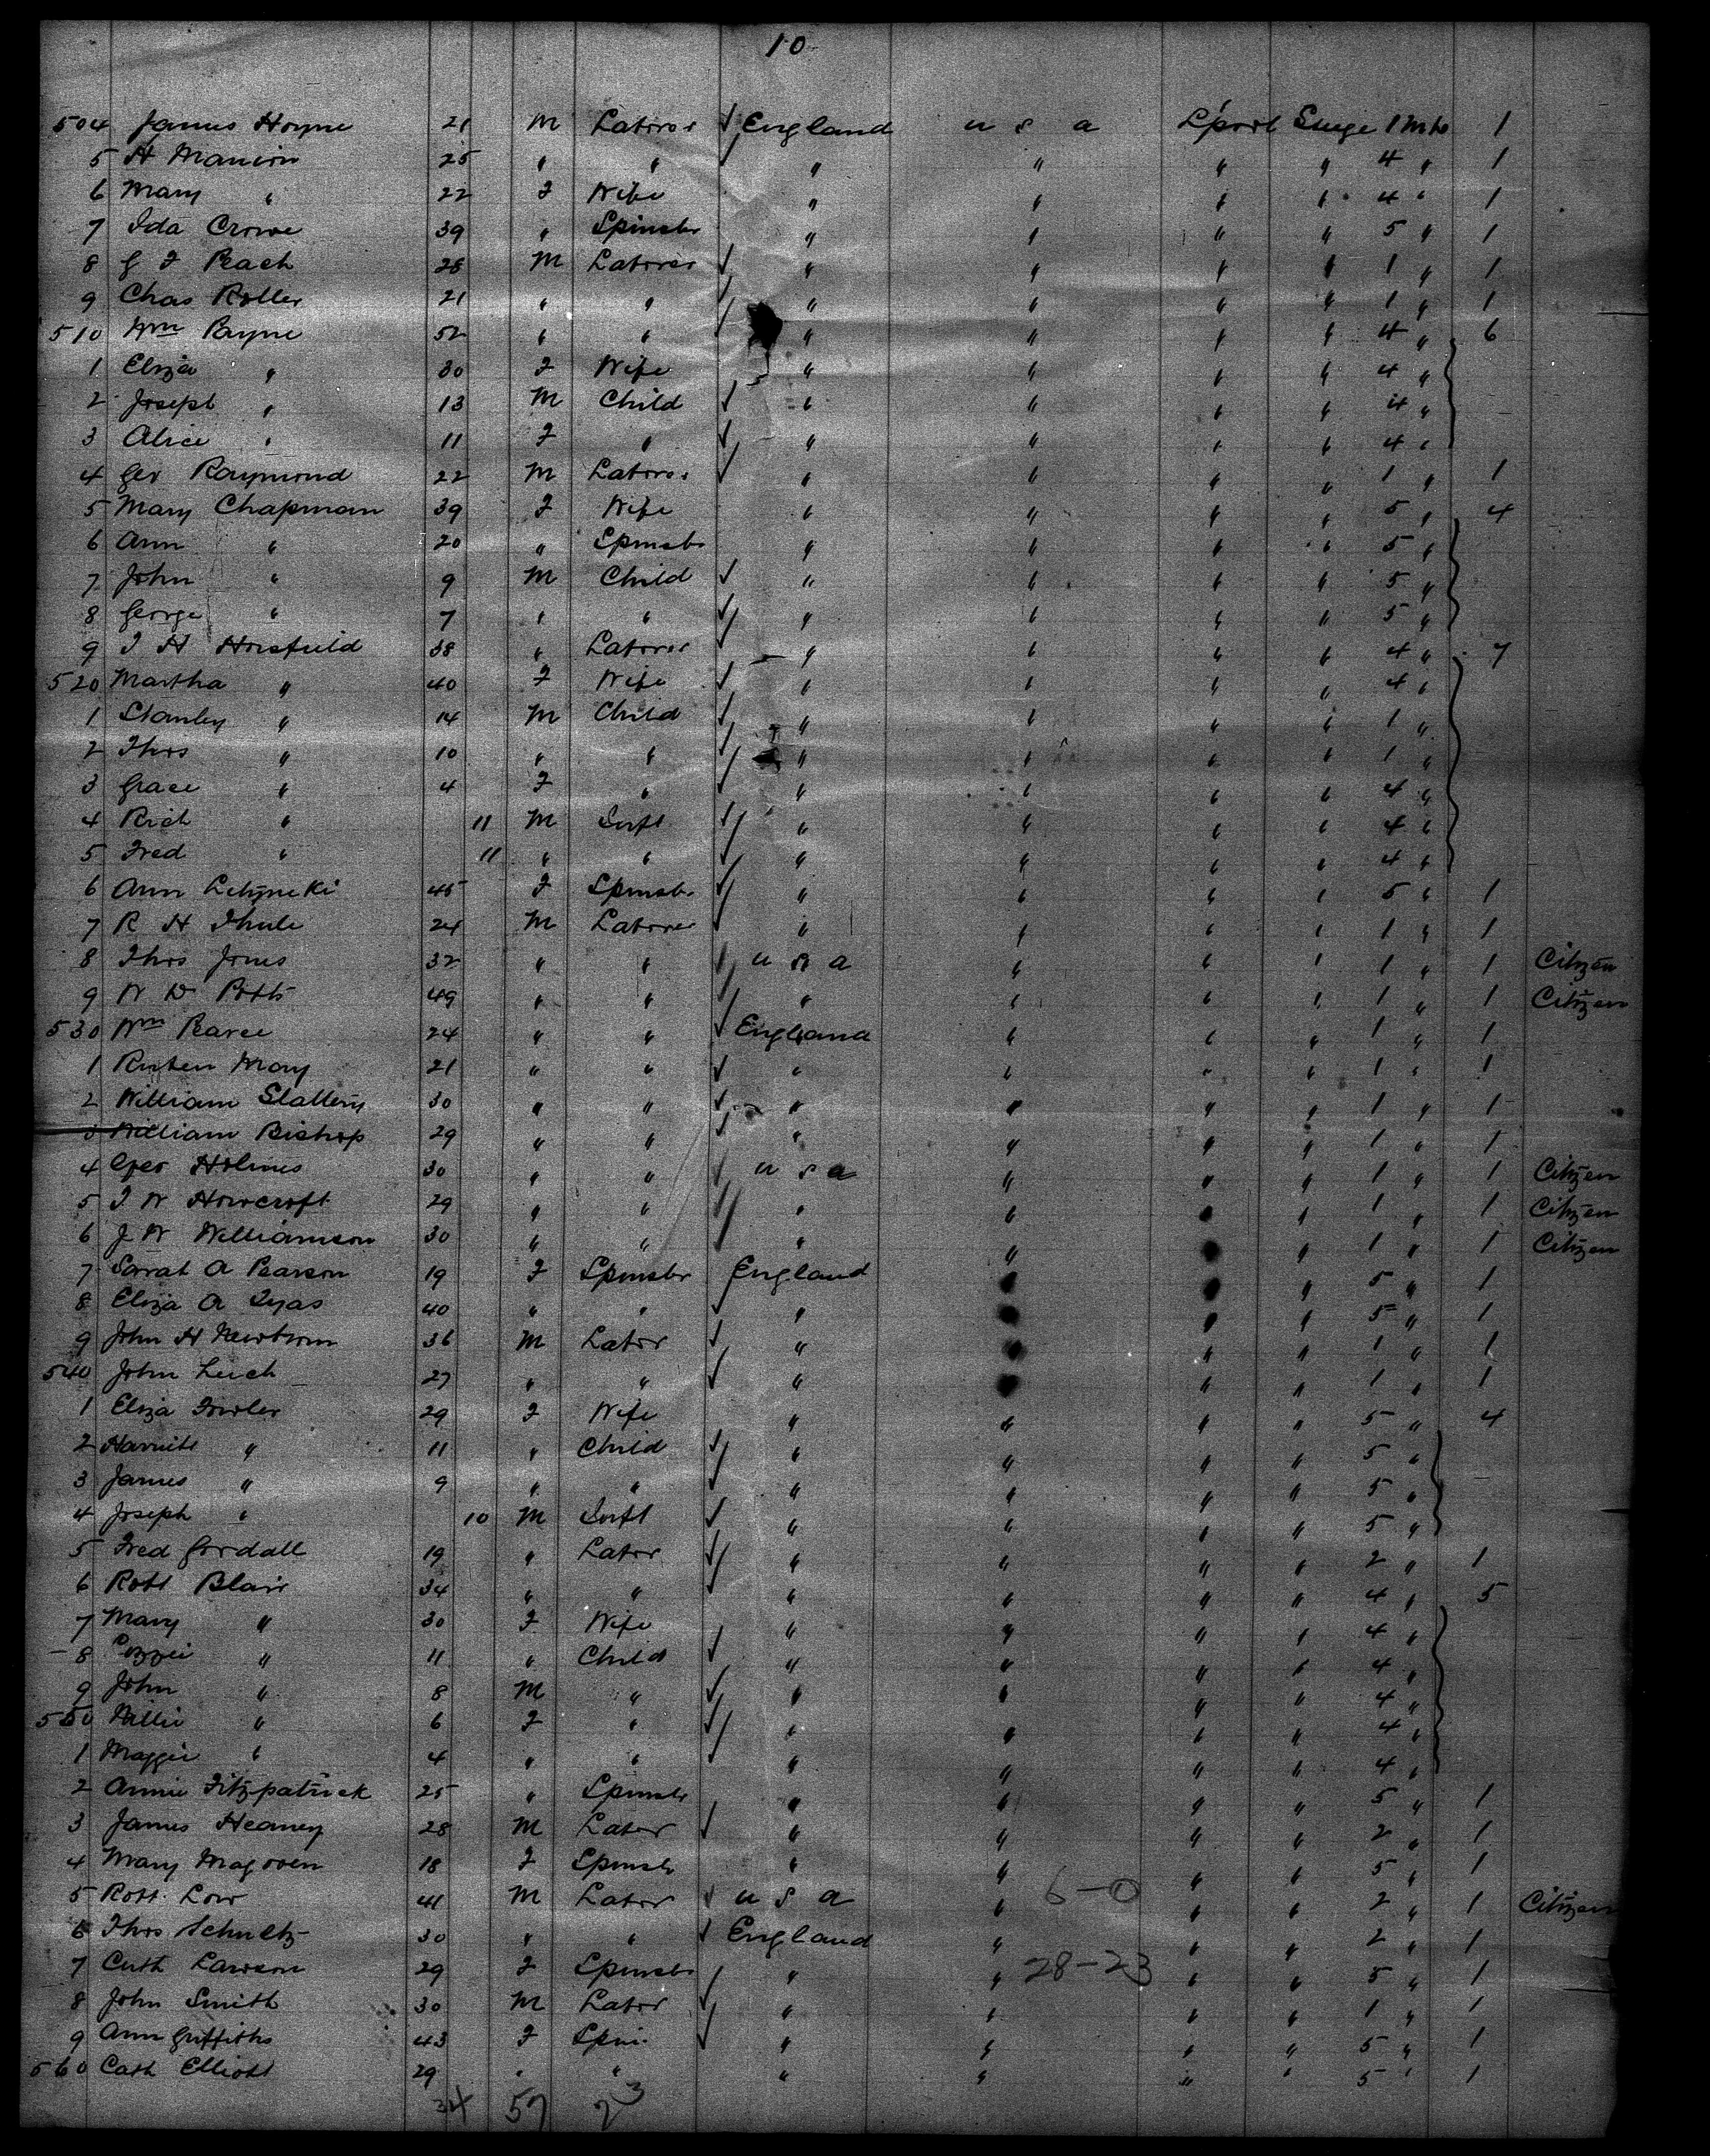 10
504 James Hoyne 21 M Laborer ✓ England U S A L'pool Stege 1 Mts 1
5 H Manion 25 " " ✓ " " " " 4 " 1
6 Mary " 22 F Wife " " " " 4 " 1
7 Ida Crowe 39 " Spinster " " " " 5 " 1
8 G F Peach 28 M Laborer ✓ " " " " 1 " 1
9 Chas Roller 21 " " ✓ " " " " 1 " 1
510 Wm Payne 52 " " ✓ " " " " 4 " 6
1 Eliza " 30 F Wife " " " " 4 "
2 Joseph " 13 M Child ✓ " " " " 4 "
3 Alice " 11 F " ✓ " " " " 4 "
4 Geo Raymond 22 M Laborer ✓ " " " " 1 " 1
5 Mary Chapman 39 F Wife " " " " 5 " 4
6 Ann " 20 " Spinster " " " " 5 "
7 John " 9 M Child ✓ " " " " 5 "
8 George " 7 " " ✓ " " " " 5 "
9 T H Horsfield 38 " Laborer ✓ " " " " 4 " 7
520 Martha " 40 F Wife ✓ " " " " 4 "
1 Stanley " 14 M Child ✓ " " " " 1 "
2 Thos " 10 " " ✓ " " " " 1 "
3 Grace " 4 F " ✓ " " " " 4 "
4 Rich " 11 M Inft ✓ " " " " 4 "
5 Fred " 11 " " ✓ " " " " 4 "
6 Ann 45 F Spinster ✓ " " " " 5 " 1
7 R H Thule 24 M Laborer ✓ " " " " 1 " 1
8 Thos Jones 32 " " ✓ U S A " " " 1 " 1 Citizen
9 W D Potts 49 " " ✓ " " " " 1 " 1 Citizen
530 Wm Pearce 24 " " ✓ England " " " 1 " 1
1 Ruben May 21 " " ✓ " " " " 1 " 1
2 William Slattery 30 " " ✓ " " " " 1 " 1
3 William Bishop 29 " " ✓ " " " " 1 " 1
4 Geo Holmes 30 " " ✓ U S A " " " 1 " 1 Citizen
5 T W Howcroft 29 " " ✓ " " " " 1 " 1 Citizen
6 J W Williamson 30 " " ✓ " " " " 1 " 1 Citizen
7 Sarah A Pearson 19 F Spinster England " " " 5 " 1
8 Eliza A Tyas 40 " " ✓ " " " " 5 " 1
9 John H Newborn 36 M Labor ✓ " " " " 1 " 1
540 John Leich 27 " " ✓ " " " " 1 " 1
1 Eliza Fowler 29 F Wife " " " " 5 " 4
2 " 11 " Child ✓ " " " " 5 "
3 James " 9 " " ✓ " " " " 5 "
4 Joseph " 10 M Inft ✓ " " " " 5 "
5 Fred Gordall 19 " Labor ✓ " " " " 2 " 1
6 Robt Blair 34 " " ✓ " " " " 4 " 5
7 Mary " 30 F Wife " " " " 4 "
8 " 11 " Child ✓ " " " " 4 "
9 John " 8 M " ✓ " " " " 4 "
550 Nellie " 6 F " ✓ " " " " 4 "
1 Maggie " 4 " " ✓ " " " " 4 "
2 Annie Fitzpatrick 25 " Spinster " " " " 5 " 1
3 James Heaney 28 M Labor ✓ " " " " 2 " 1
4 Mary Magoven 18 F Spinster " " " " 5 " 1
5 Robt. Low 41 M Labor ✓ U S A " 6-0 " " 2 " 1 Citizen
6 Thos Schultz 30 " " ✓ England " " " 2 " 1
7 Cuth Lawson 29 F Spinster " " 28-23 " " 5 " 1
8 John Smith 30 M Labor ✓ " " " " 1 " 1
9 Ann Griffiths 43 F Spin. ✓ " " " " 5 " 1
560 Cath Elliott 29 " " " " " " 5 " 1
34 57 23